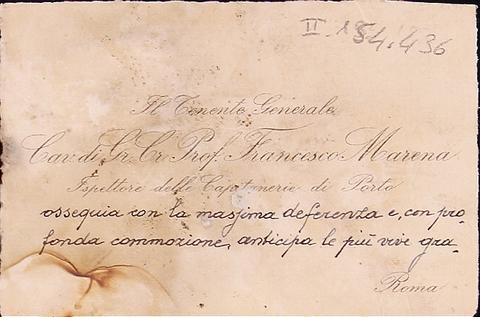 II 54.436
Il Tenente Generale
Cav. di Gr. Cr. Prof. Francesco Marena
Ispettore delle Capitanerie di Porto
ossequia con la massima deferenza e, con pro-
fonda commozione, anticipa le più vive gra-
Roma